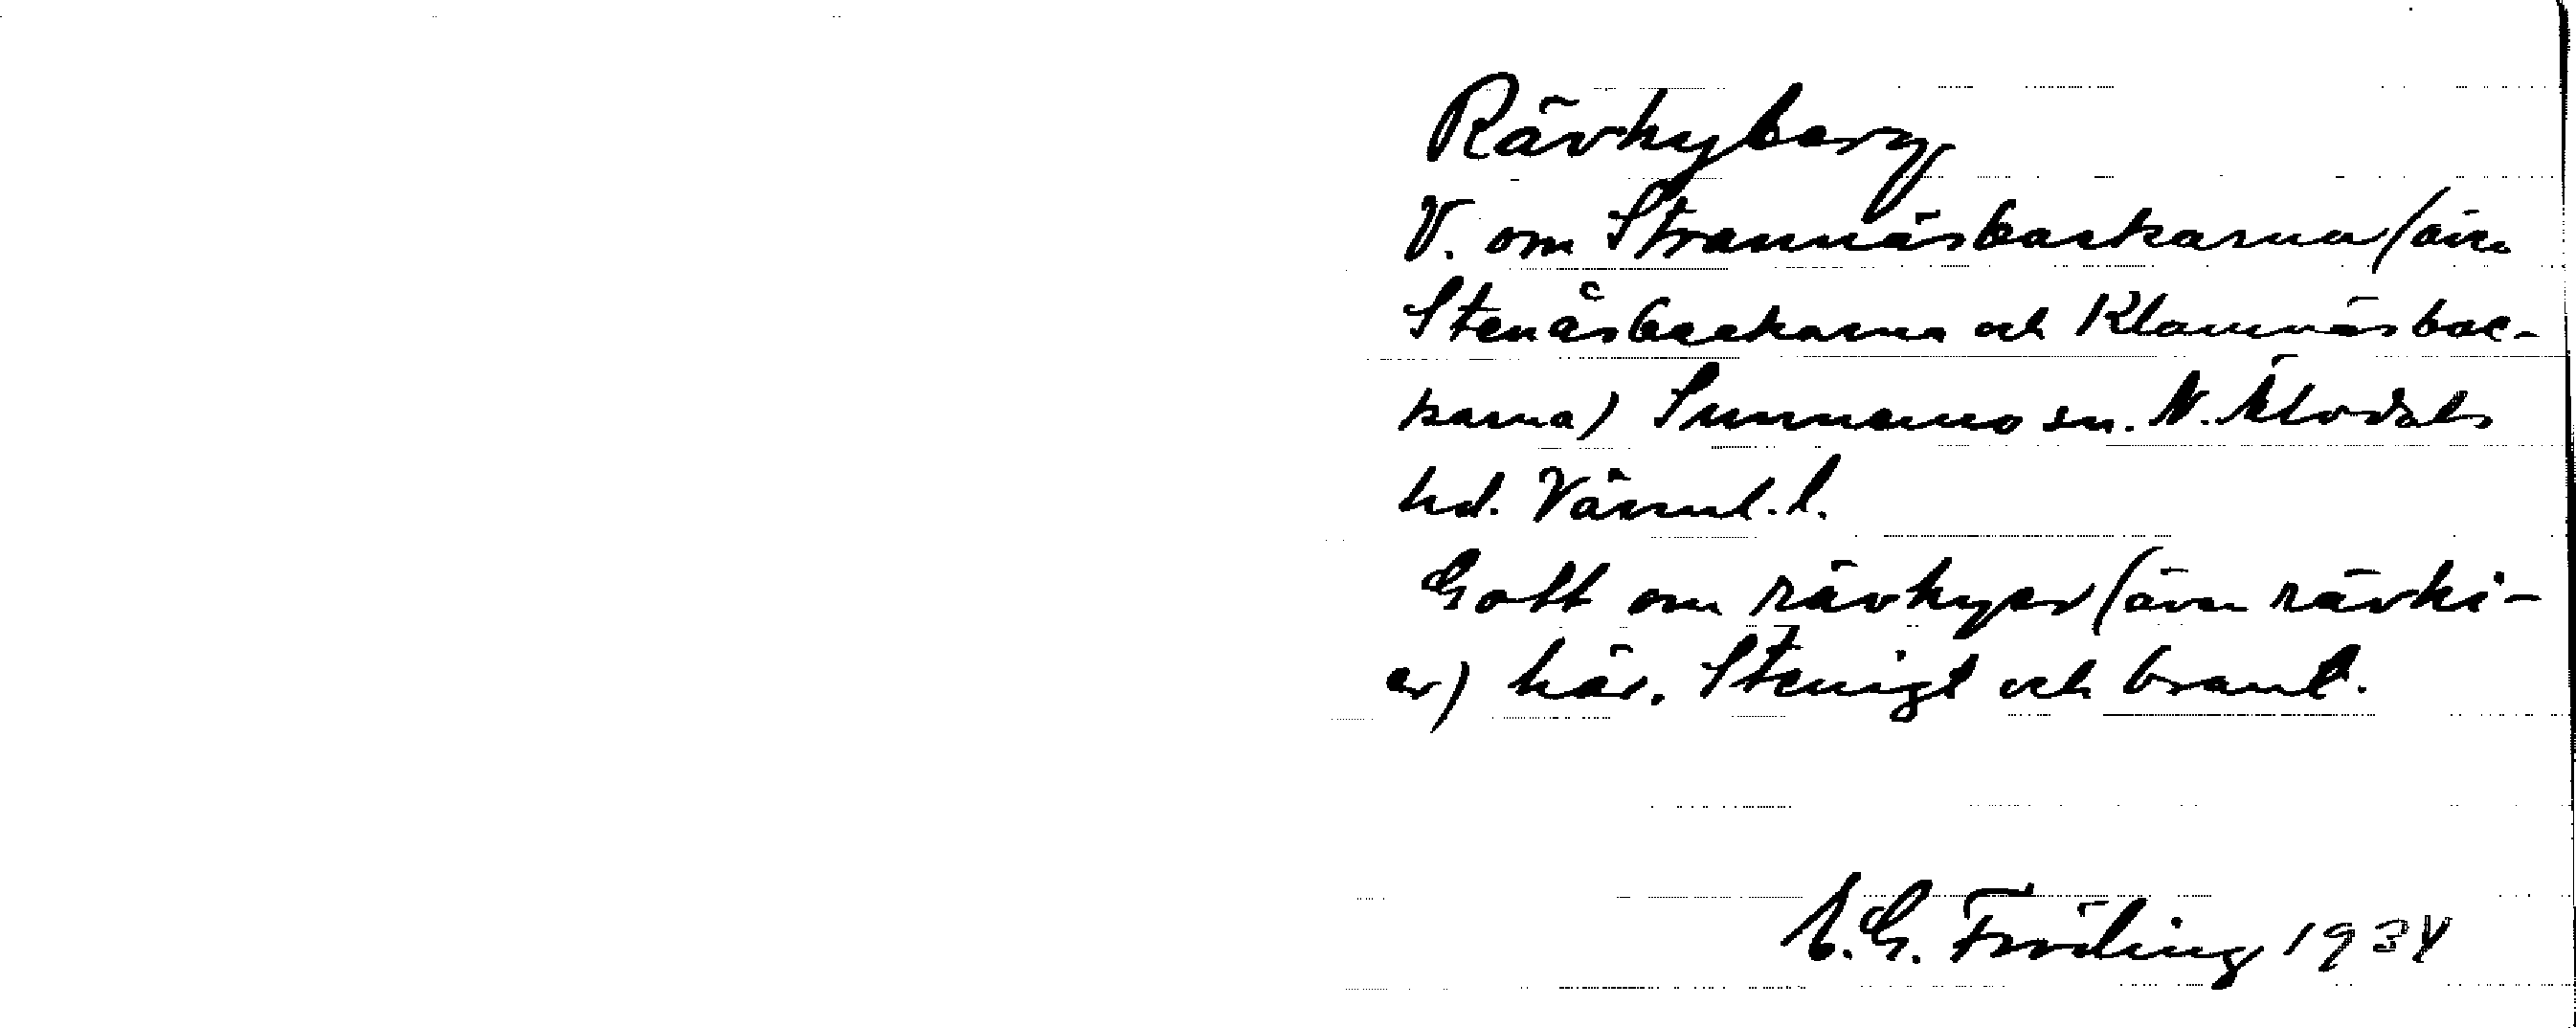 Rävhyberg
V. om Strannäsbackarna (även
Stenåsbackarna och Klannäsbac-
karna) Sunnemo sn. N. Älvdals
hd. Värml. l.
Gott om rävhyer (även rävhi-
er) här. Stenigt och brant.
E.G. Fröding 1934